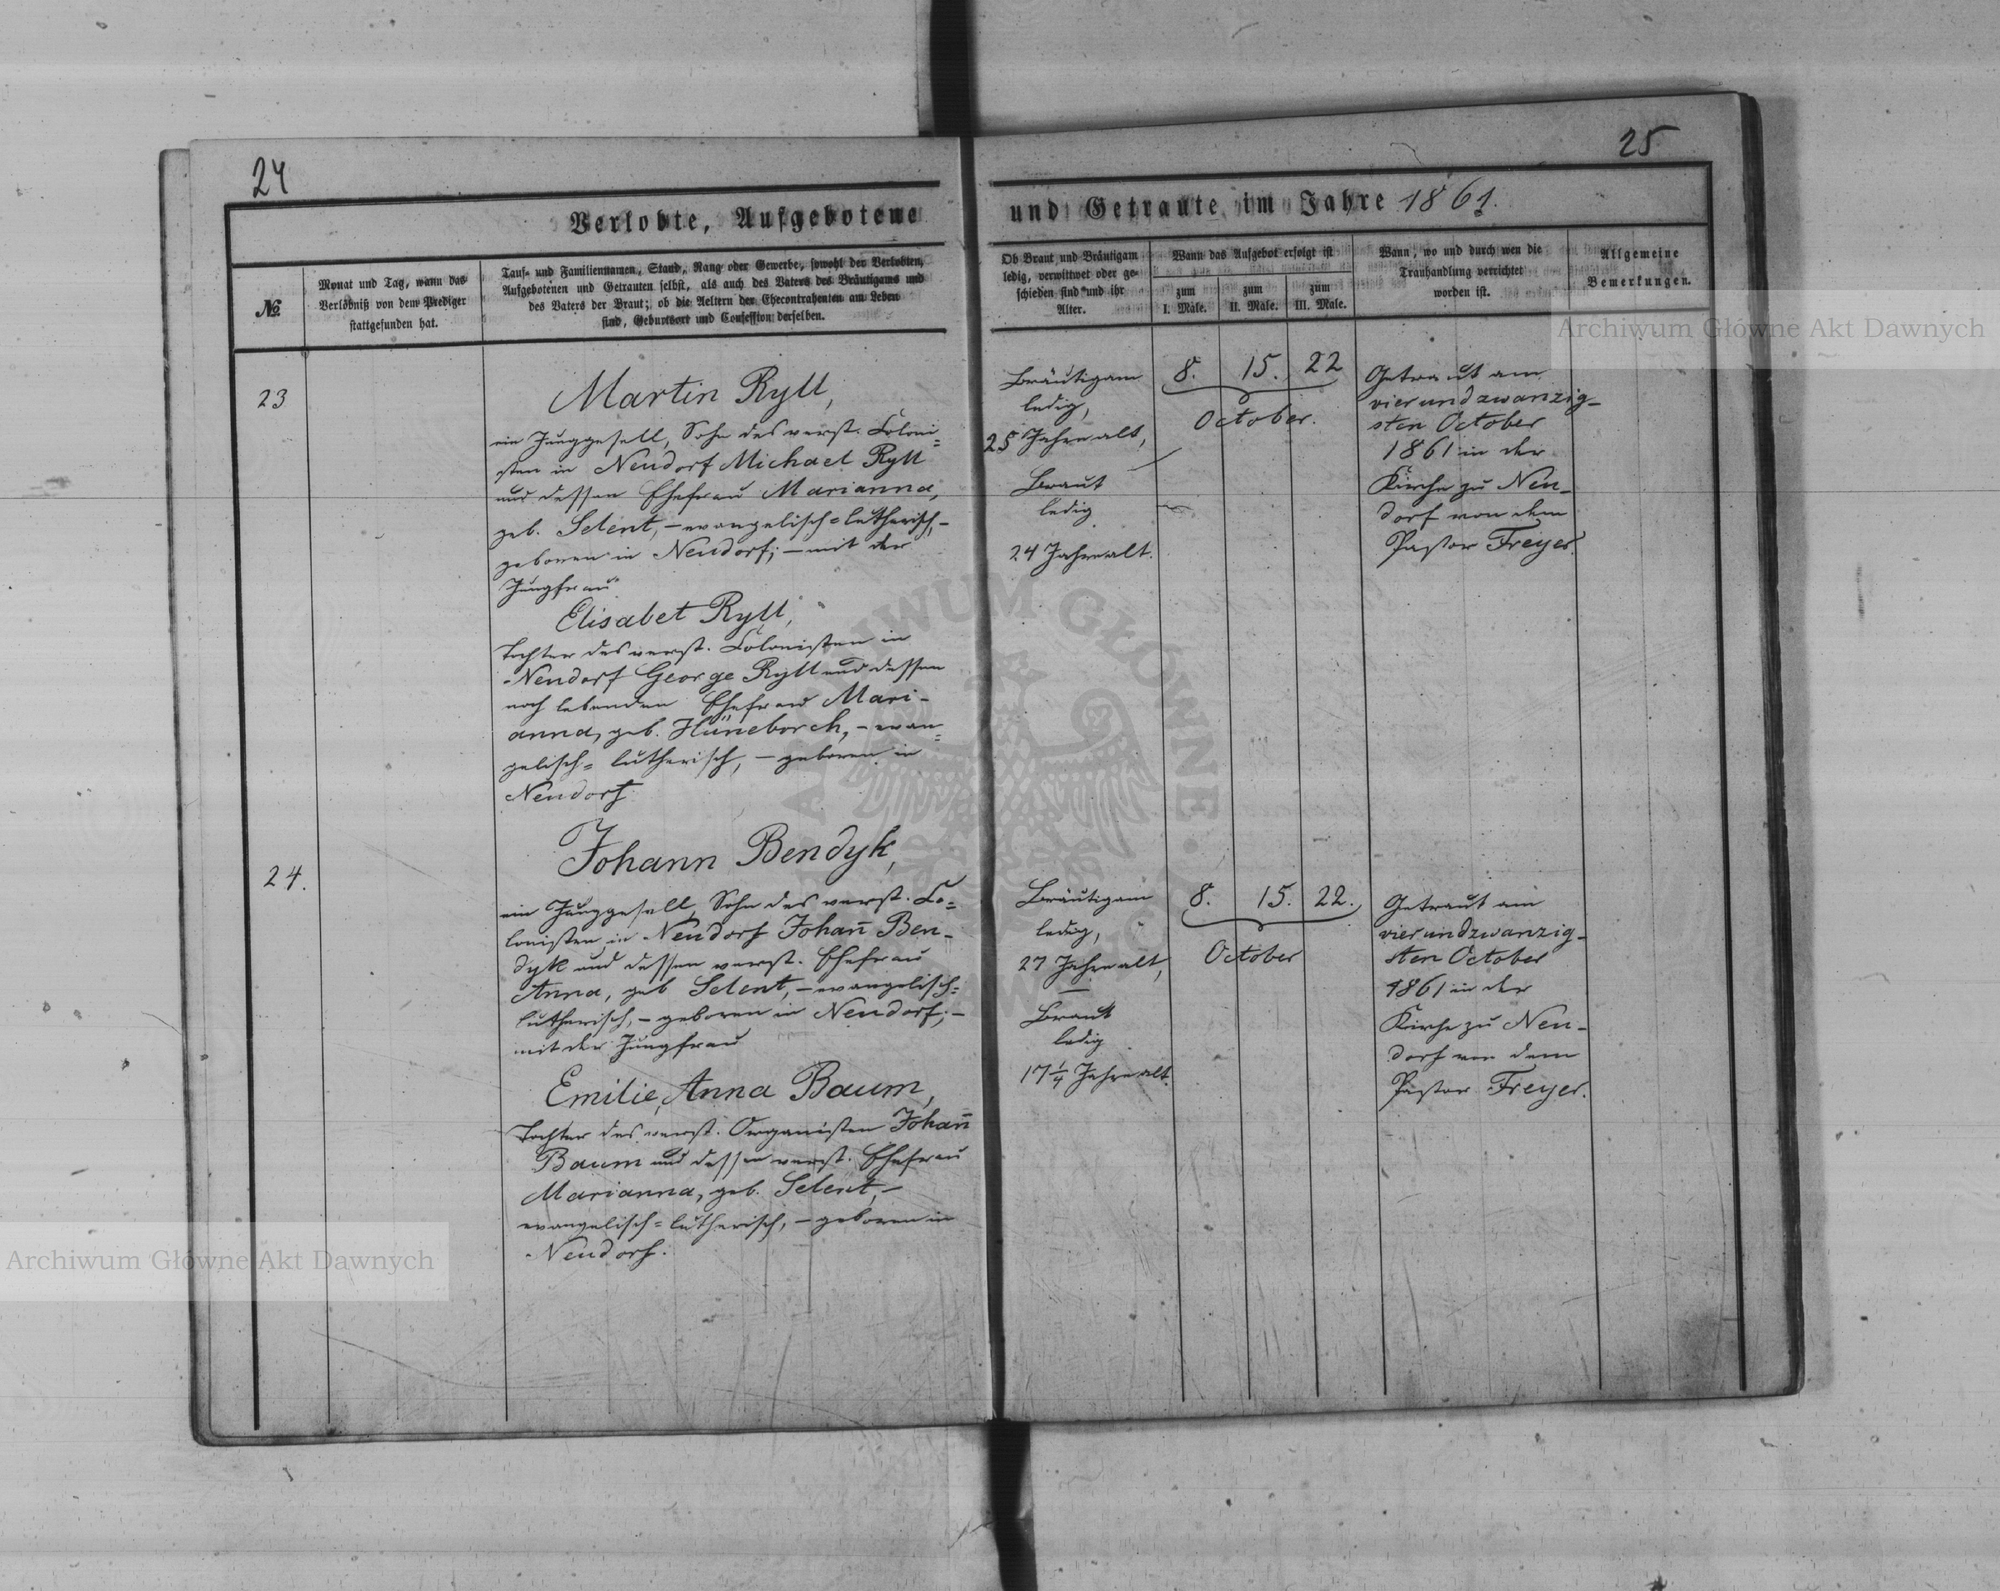 24
25
Verlobte, Aufgebotene
und Getraute im Jahre 1861.
№
Monat und Tag, wann das
Verlöbniß von dem Prediger
stattgefunden hat.
Tauf- und Familiennamen, Stand, Rang oder Gewerbe, sowohl der Verlobten,
Aufgebotenen und Getrauten selbst, als auch des Vaters des Bräutigams und
des Vaters der Braut; ob die Aeltern der Ehecontrahenten am Leben
sind, Geburtsort und Confession derselben.
Ob Braut und Bräutigam
ledig, verwittwet oder ge-
schieden sind und ihr
Alter.
Wann das Aufgebot erfolgt ist
zum
I. Male.
zum
II. Male.
zum
III. Male.
Wann, wo und durch wen die
Trauhandlung verrichtet
worden ist.
Allgemeine
Bemerkungen.
23
Martin Ryll,
ein Junggesell, Sohn des verst. Coloni=
sten in Neudorf Michael Ryll
und dessen Ehefrau Marianna,
geb. Selent, – evangelisch=lutherisch, –
geboren in Neudorf; – mit der
Jungfrau
Elisabet Ryll,
Tochter des verst. Colonisten in
Neudorf George Ryll und dessen
noch lebenden Ehefrau Mari-
anna, geb. Hüneborch, – evan=
gelisch= lutherisch, – geboren in
Neudorf.
Bräutigam
ledig,
25 Jahre alt,
Braut
ledig
24 Jahre alt.
8. 15. 22
October.
Getraut am
vierundzwanzig-
sten October
1861 in der
Kirche zu Neu-
dorf von dem
Pastor Freyer.
24.
Johann Bendyk,
ein Junggesell, Sohn des verst. Co=
lonisten in Neudorf Johan̄ Ben-
dyk und dessen verst. Ehefrau
Anna, geb Selent, – evangelisch=
lutherisch, – geboren in Neudorf; –
mit der Jungfrau
Emilie, Anna Baum,
Tochter des verst. Organisten Johan̄
Baum und dessen verst. Ehefrau
Marianna, geb. Selent, –
evangelisch= lutherisch, – geboren in
Neudorf.
Bräutigam
ledig,
27 Jahre alt,
Braut
ledig
17 1/4 Jahre alt.
8. 15. 22.
October
Getraut am
vierundzwanzig-
sten October
1861 in der
Kirche zu Neu-
dorf von dem
Pastor Freyer.
Archiwum Główne Akt Dawnych
Archiwum Główne Akt Dawnych